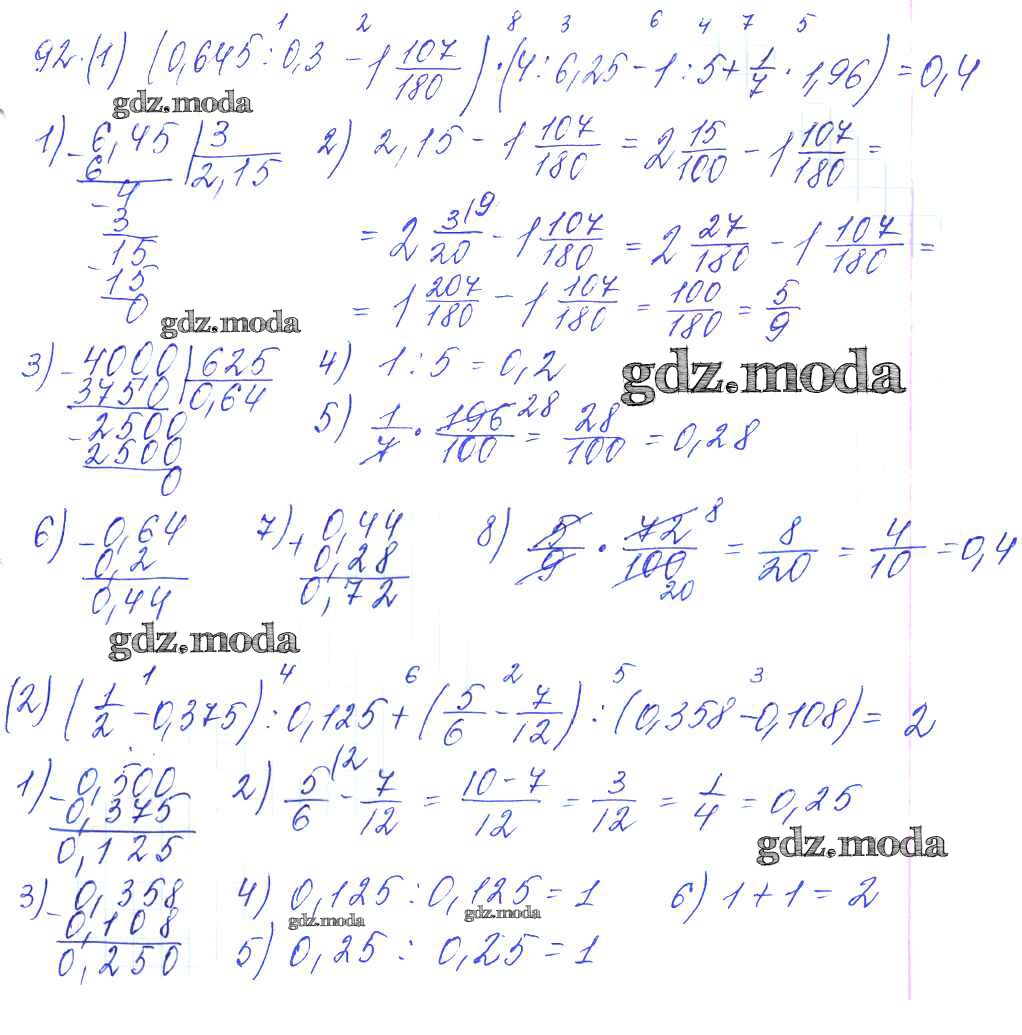 1 2 8 3 6 4 7 5
92.(1) (0,645 : 0,3 - 1 107/180) · (4 : 6,25 - 1 : 5 + 1/7 · 1,96) = 0,4
gdz.moda
1) 6,45 | 3
- 6 2,15
- 4
3
- 15
15
0
2) 2,15 - 1 107/180 = 2 15/100 - 1 107/180 =
= 2 3/20 (9 - 1 107/180 = 2 27/180 - 1 107/180 =
= 1 207/180 - 1 107/180 = 100/180 = 5/9
gdz.moda
3) - 4000 | 625
3750 0,64
- 2500
2500
0
4) 1 : 5 = 0,2
gdz.moda
5) 1/7 · 196/100 28 = 28/100 = 0,28
6) - 0,64
0,2
0,44
7) + 0,44
0,28
0,72
8) 5/9 · 72/100 8 20 = 8/20 = 4/10 = 0,4
gdz.moda
1 4 6 2 5 3
(2) (1/2 - 0,375) : 0,125 + (5/6 - 7/12) : (0,358 - 0,108) = 2
1) - 0,500
0,375
0,125
2) 5/6 (2 - 7/12 = 10-7/12 = 3/12 = 1/4 = 0,25
gdz.moda
3) - 0,358
0,108
0,250
4) 0,125 : 0,125 = 1
gdz.moda gdz.moda
5) 0,25 : 0,25 = 1
6) 1 + 1 = 2